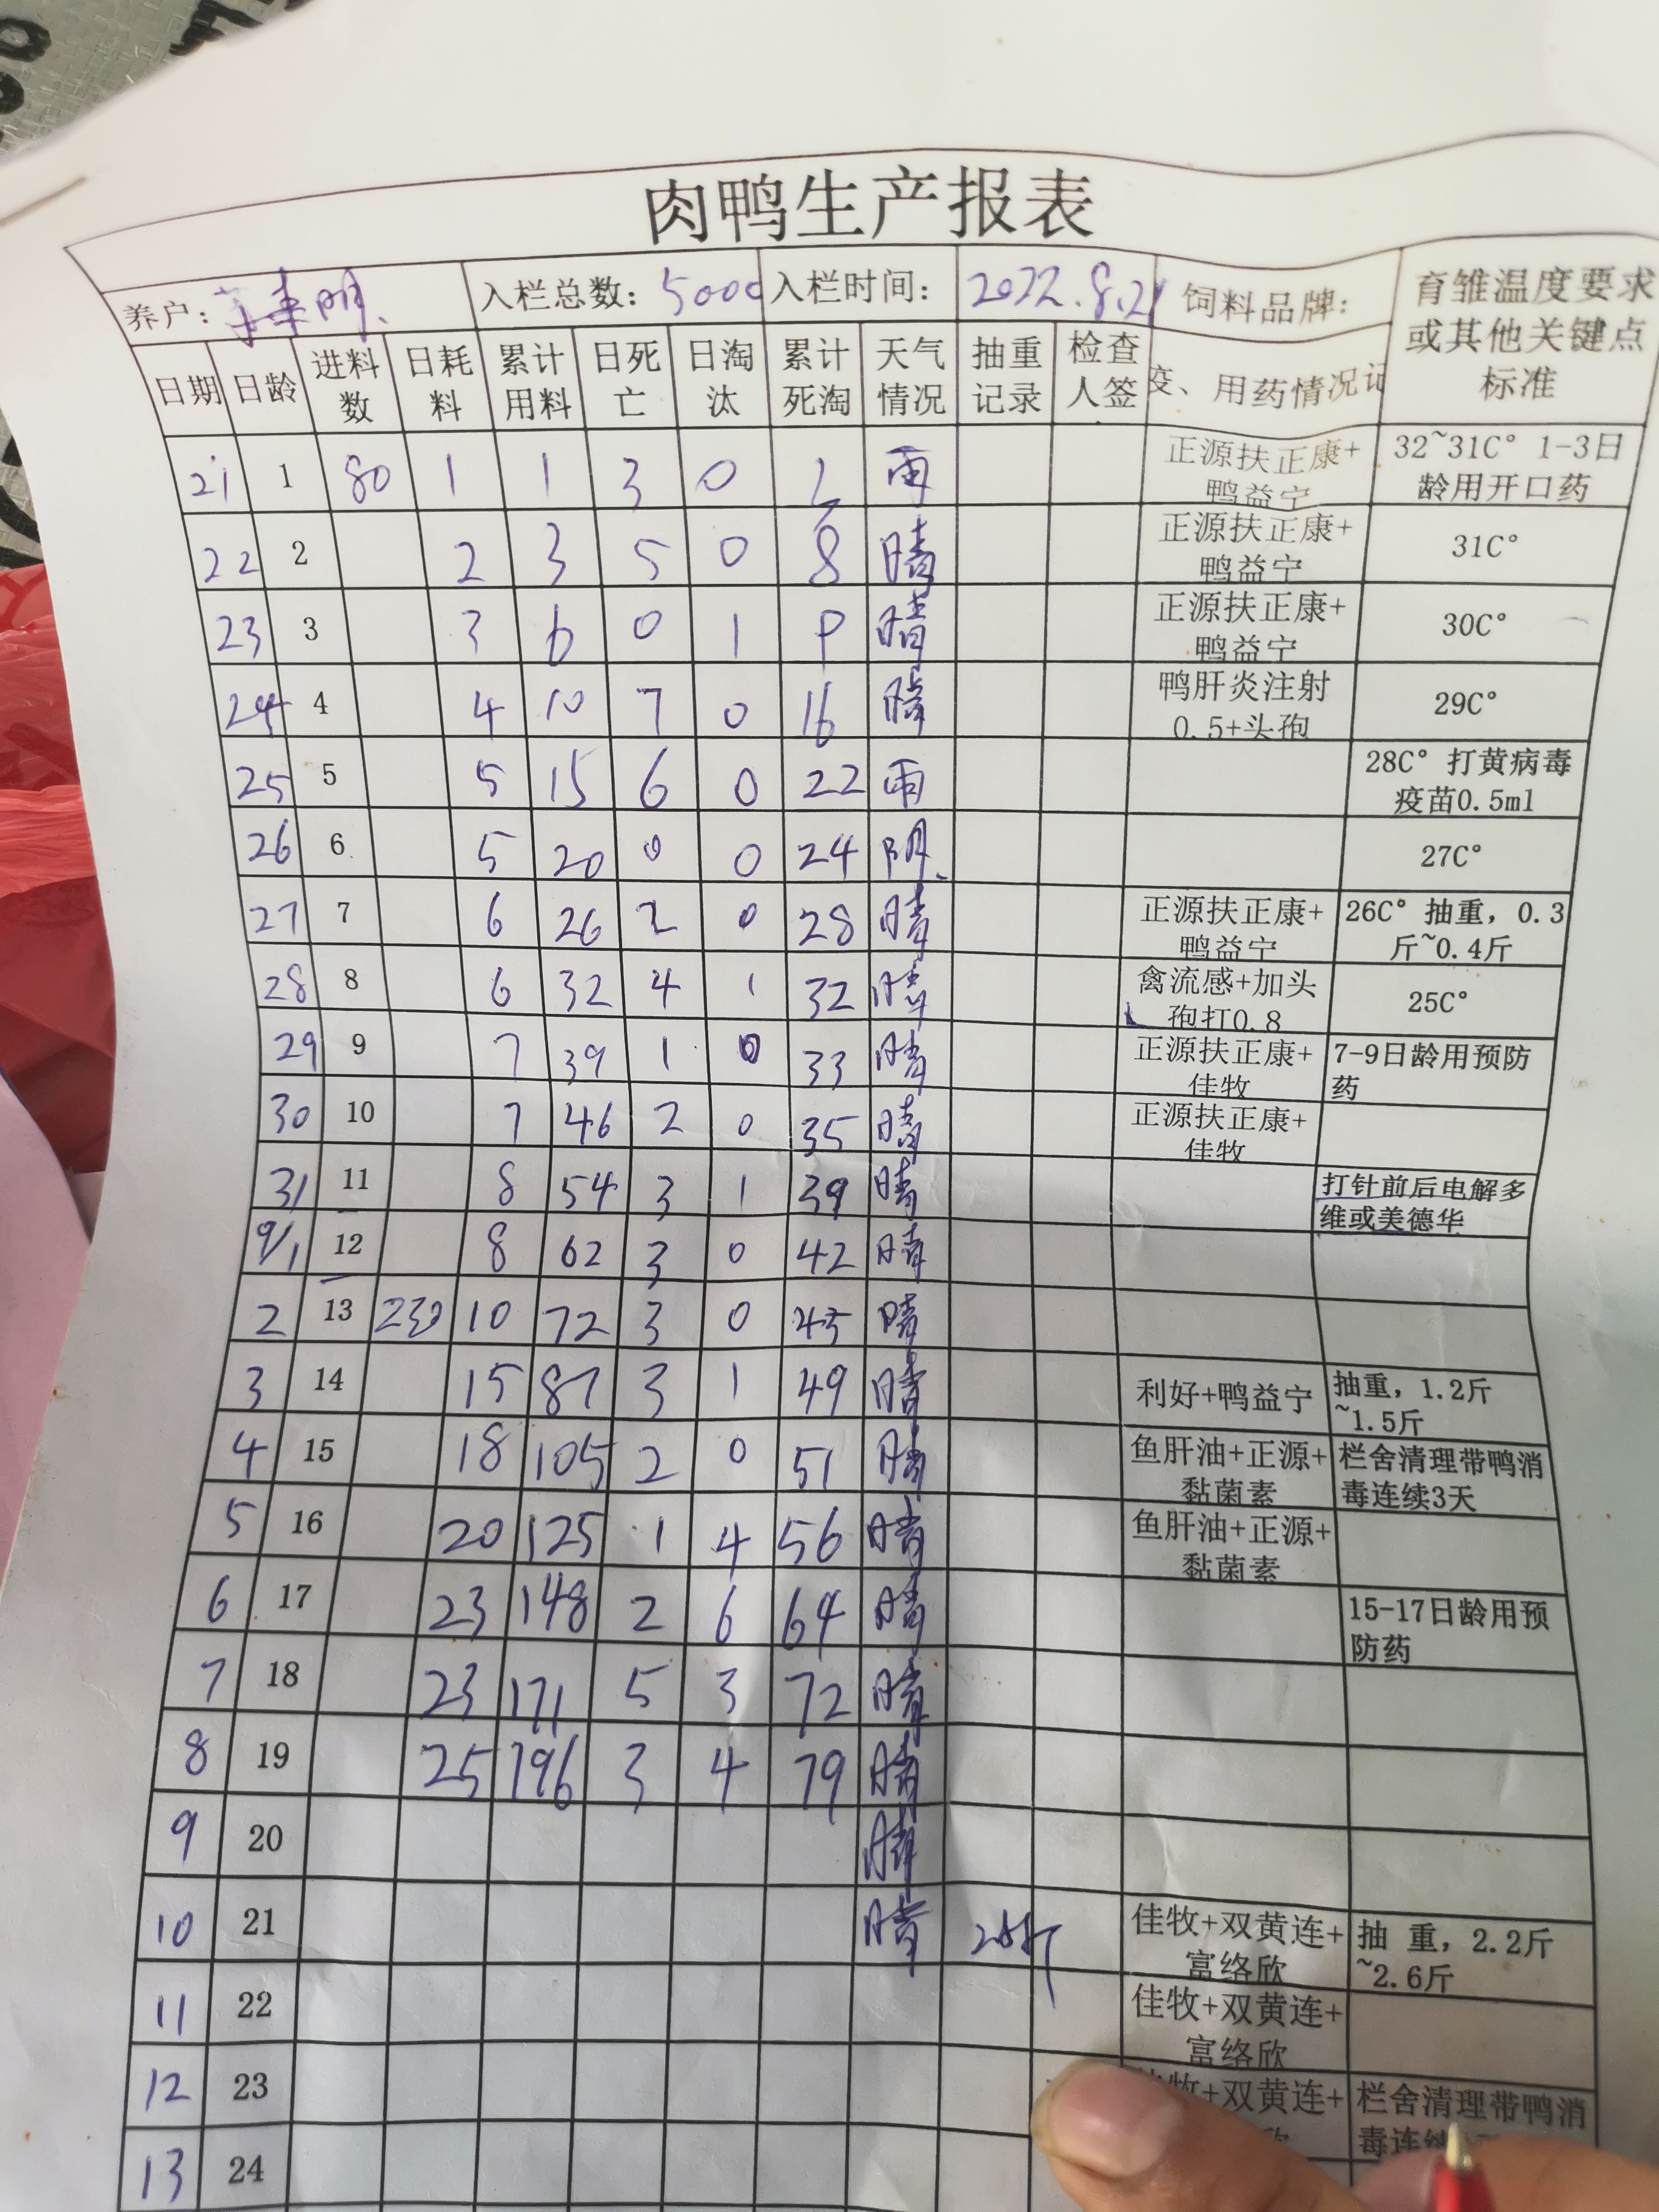 肉鸭生产报表
养户： 入栏总数：5000 入栏时间：2022.8.21 饲料品牌： 育雏温度要求或其他关键点标准
日期 日龄 进料数 日耗料 累计用料 日死亡 日淘汰 累计死淘 天气情况 抽重记录 检查人签 疫、用药情况记
21 1 80 1 1 3 0 雨 正源扶正康+鸭益宁 32~31C° 1-3日龄用开口药
22 2 2 3 5 0 8 晴 正源扶正康+鸭益宁 31C°
23 3 3 6 0 1 9 晴 正源扶正康+鸭益宁 30C°
24 4 4 10 7 0 16 晴 鸭肝炎注射0.5+头孢 29C°
25 5 5 15 6 0 22 雨 28C° 打黄病毒疫苗0.5ml
26 6 5 20 0 0 24 阴 27C°
27 7 6 26 2 0 28 晴 正源扶正康+鸭益宁 26C° 抽重，0.3斤~0.4斤
28 8 6 32 4 1 32 晴 禽流感+加头孢打0.8 25C°
29 9 7 39 1 0 33 晴 正源扶正康+佳牧 7-9日龄用预防药
30 10 7 46 2 0 35 晴 正源扶正康+佳牧
31 11 8 54 3 1 39 晴 打针前后电解多维或美德华
9/1 12 8 62 3 0 42 晴
2 13 230 10 72 3 0 45 晴
3 14 15 87 3 1 49 晴 利好+鸭益宁 抽重，1.2斤~1.5斤
4 15 18 105 2 0 51 晴 鱼肝油+正源+黏菌素 栏舍清理带鸭消毒连续3天
5 16 20 125 1 4 56 晴 鱼肝油+正源+黏菌素
6 17 23 148 2 6 64 晴 15-17日龄用预防药
7 18 23 171 5 3 72 晴
8 19 25 196 3 4 79 晴
9 20 晴
10 21 晴 佳牧+双黄连+富络欣 抽 重，2.2斤~2.6斤
11 22 佳牧+双黄连+富络欣
12 23 牧+双黄连+ 栏舍清理带鸭消毒连
13 24